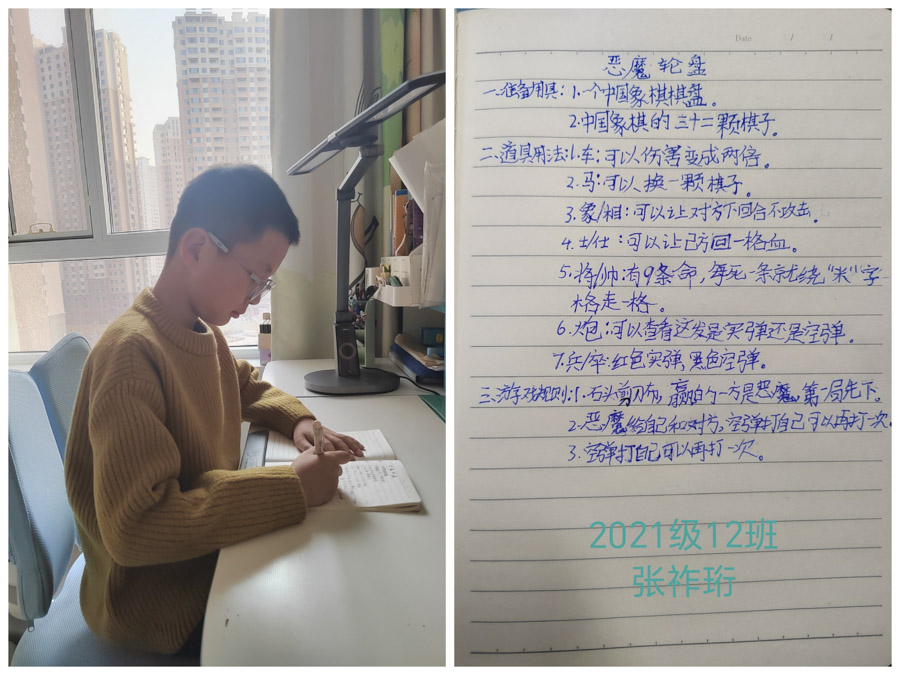 Date / /
恶魔轮盘
一.准备用具:1.一个中国象棋棋盘。
2.中国象棋的三十二颗棋子。
二、道具用法:1.车:可以伤害变成两倍。
2.马:可以换一颗棋子。
3.象/相:可以让对方下回合不攻击。
4.士/仕:可以让己方回一格血。
5.将/帅:有9条命,每死一条就绕“米”字
格走一格。
6.炮:可以查看这发是实弹还是空弹。
7.兵/卒:红色实弹,黑色空弹。
三、游戏规则:1.石头剪刀布,赢的一方是恶魔,第一局先下。
2.恶魔给自己和对方,空弹打自己可以再打一次。
3.空弹打自己可以再打一次。
2021级12班
张祚珩